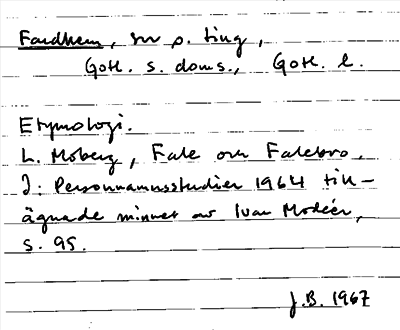 Fardhem, sn o. ting,
Gotl. s. doms., Gotl. l.
Etymologi.
L. Moberg, Fale och Falebro.
I: Personnamnsstudier 1964 till-
ägnade minnet av Ivar Modéer,
s. 95.
J.B. 1967